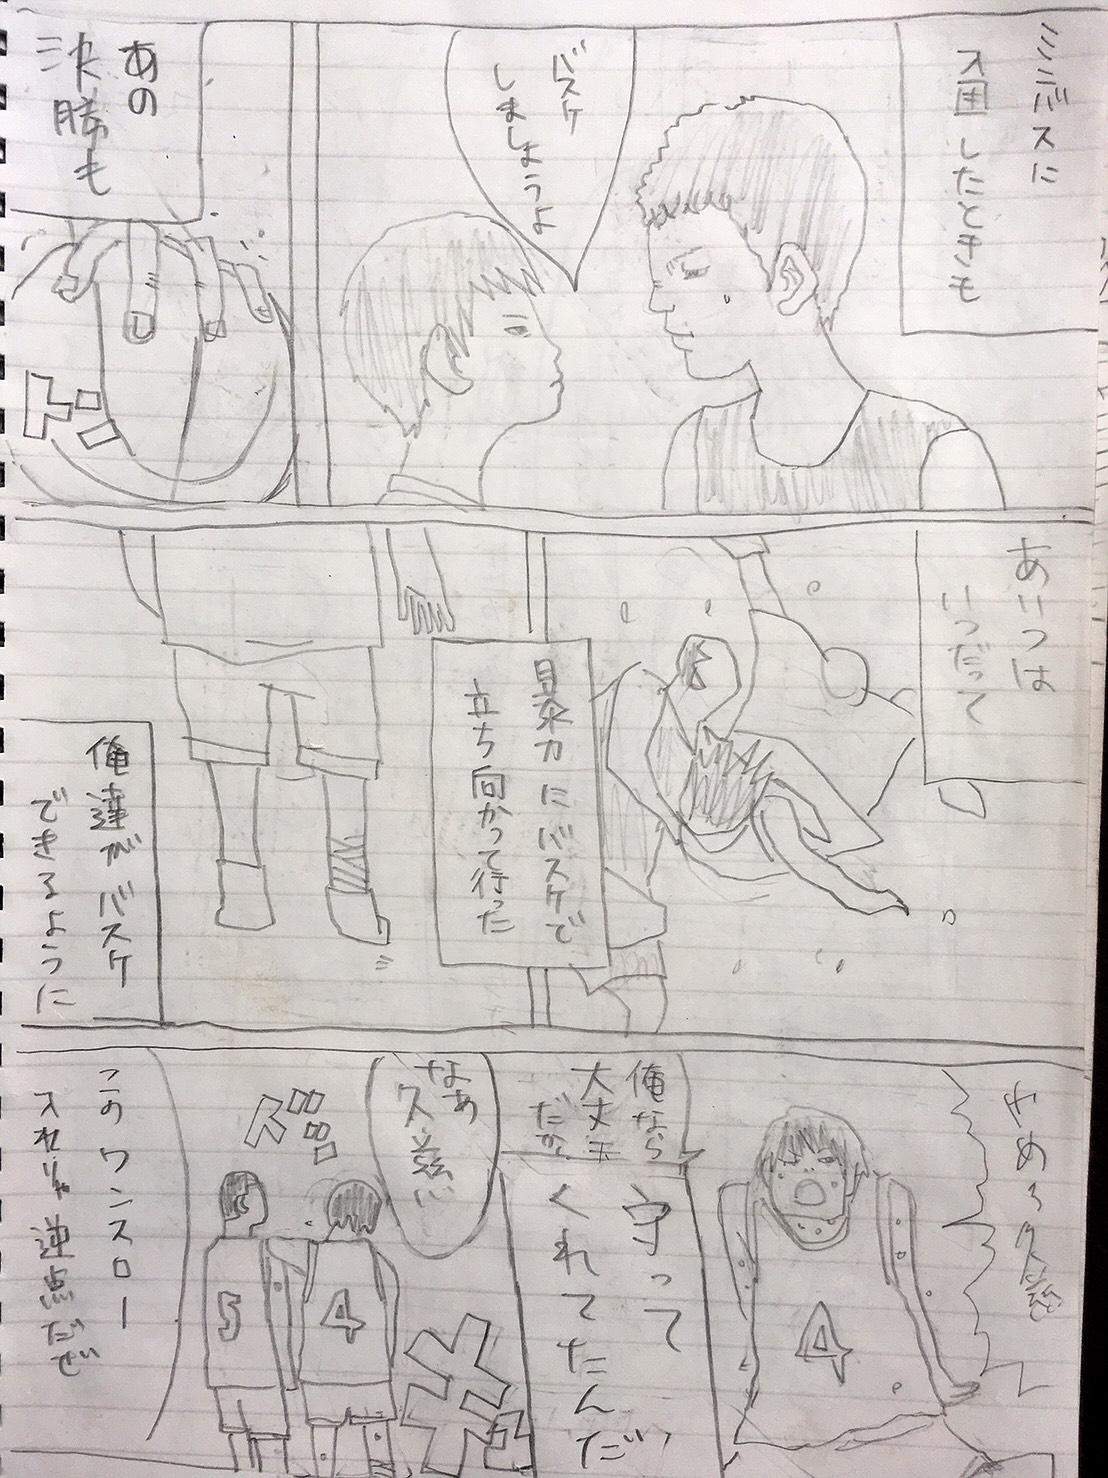 ミニバスに
入団したときも
バスケ
しましょうよ
あの
決勝も
ドン
あいつは
いつだって
暴力にバスケで
立ち向かって行った
俺達がバスケ
できるように
やめろ久慈
俺なら
大丈夫
だから
守って
くれてたんだ
なあ
久慈
4
5
4
このワンスロー
入れりゃ逆点だぜ